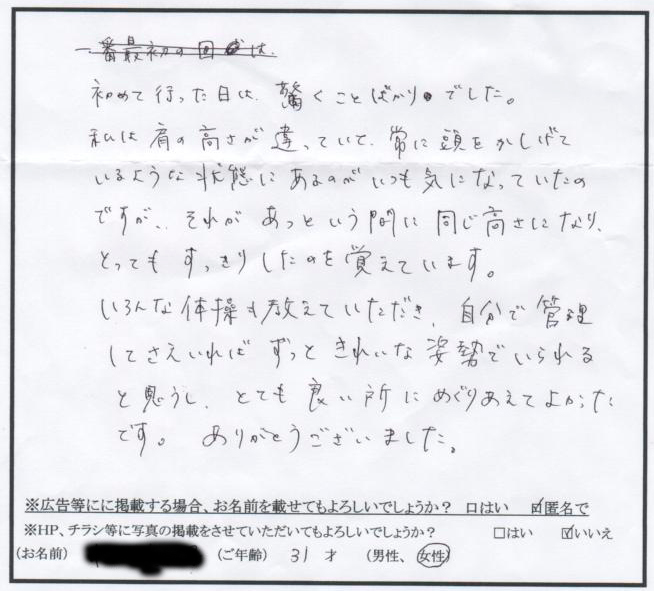 一番最初の回は、
初めて行った日は、驚くことばかりでした。
私は肩の高さが違っていて、常に頭をかしげて
いるような状態にあるのがいつも気になっていたの
ですが、それがあっという間に同じ高さになり、
とってもすっきりしたのを覚えています。
いろんな体操も教えていただき、自分で管理
してさえいればずっときれいな姿勢でいられる
と思うし、とても良い所にめぐりあえてよかった
です。ありがとうございました。
※広告等にに掲載する場合、お名前を載せてもよろしいでしょうか？ □はい ☑匿名で
※HP、チラシ等に写真の掲載をさせていただいてもよろしいでしょうか？ □はい ☑いいえ
(お名前) (ご年齢) 31 才 (男性、女性)